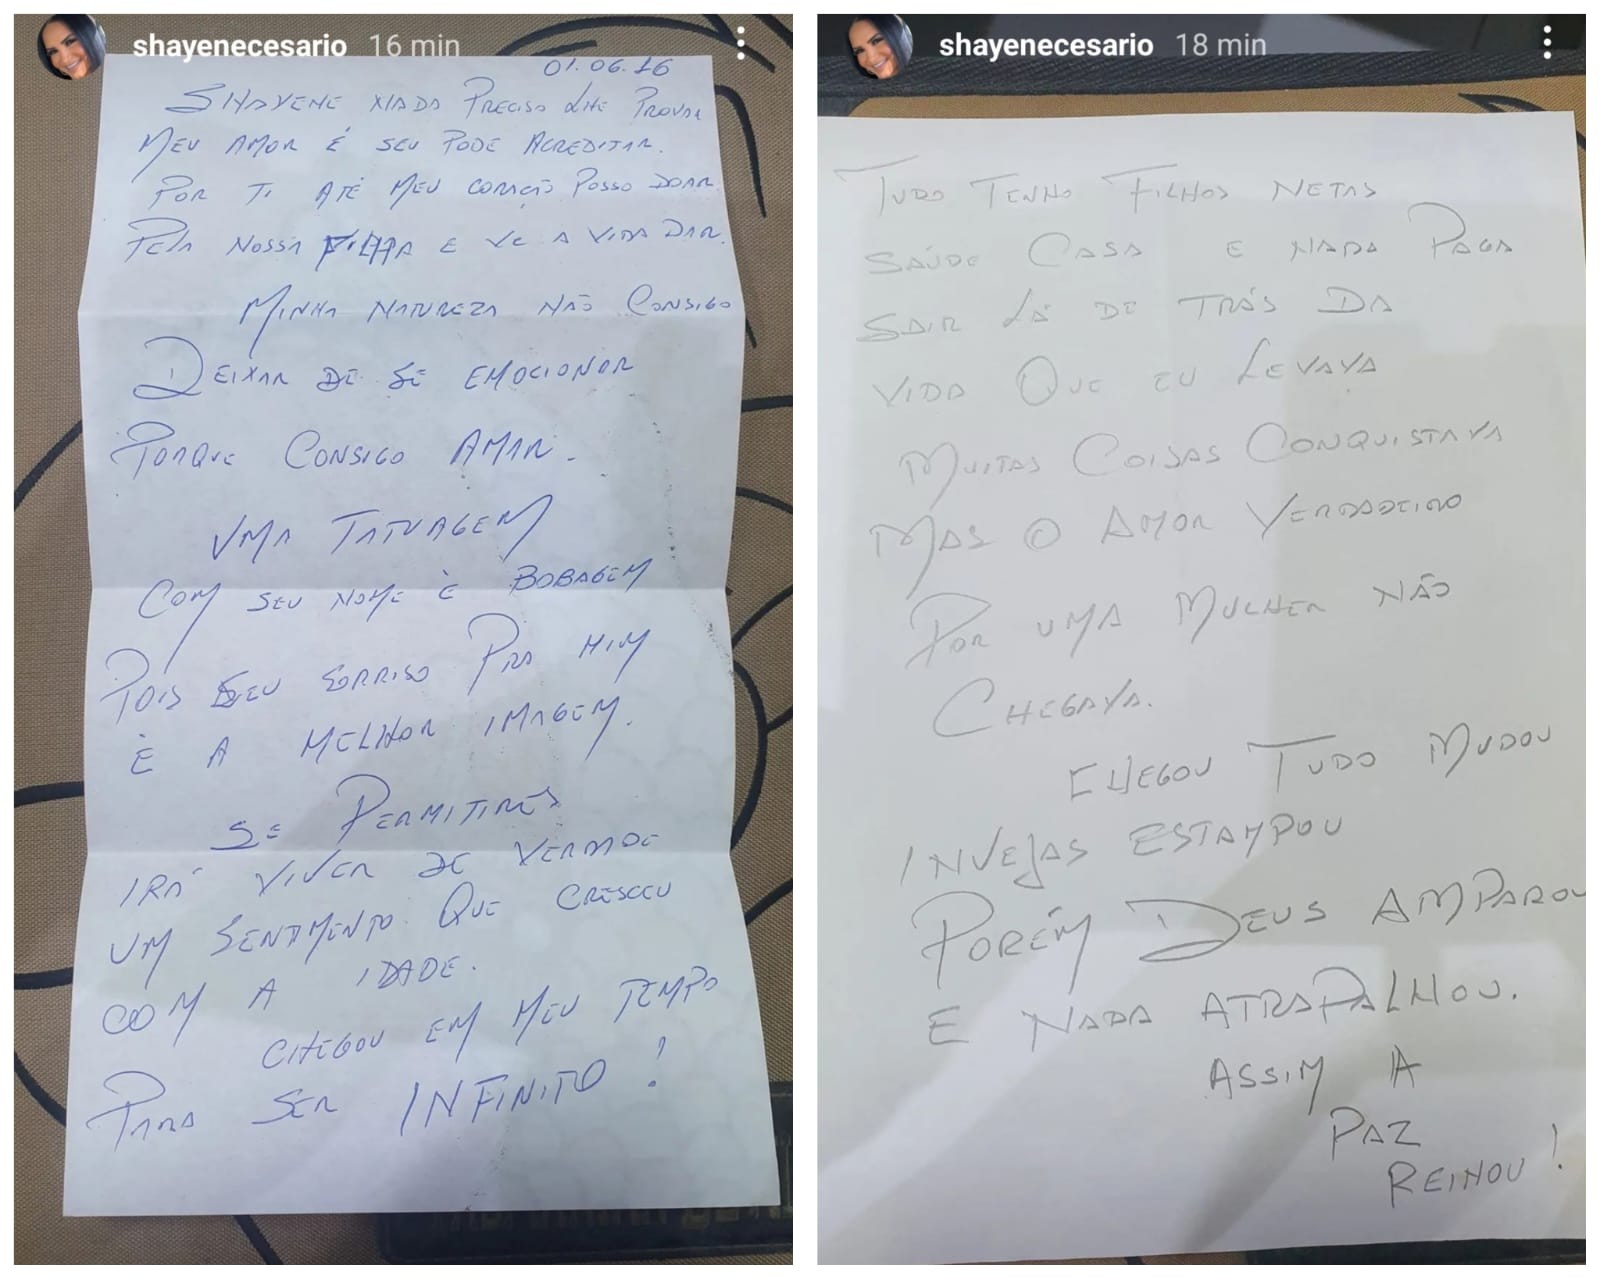 shayenecesario 16 min
01.06.16
SHAYENE NADA PRECISO LHE PROVAR
MEU AMOR É SEU PODE ACREDITAR.
POR TI ATÉ MEU CORAÇÃO POSSO DOAR
PELA NOSSA FILHA E VC A VIDA DAR.
MINHA NATUREZA NÃO CONSIGO
DEIXAR DE SE EMOCIONAR
PORQUE CONSIGO AMAR.
UMA TATUAGEM
COM SEU NOME É BOBAGEM
POIS SEU SORRISO PRA MIM
É A MELHOR IMAGEM.
SE PERMITIRES
IRÁ VIVER DE VERDADE
UM SENTIMENTO QUE CRESCEU
COM A IDADE.
CHEGOU EM MEU TEMPO
PARA SER INFINITO!
shayenecesario 18 min
TUDO TENHO FILHOS NETAS
SAÚDE CASA E NADA PAGA
SAIR LÁ DE TRÁS DA
VIDA QUE EU LEVAVA
MUITAS COISAS CONQUISTAVA
MAS O AMOR VERDADEIRO
POR UMA MULHER NÃO
CHEGAVA.
CHEGOU TUDO MUDOU
INVEJAS ESTAMPOU
PORÉM DEUS AMPAROU
E NADA ATRAPALHOU.
ASSIM A
PAZ
REINOU!